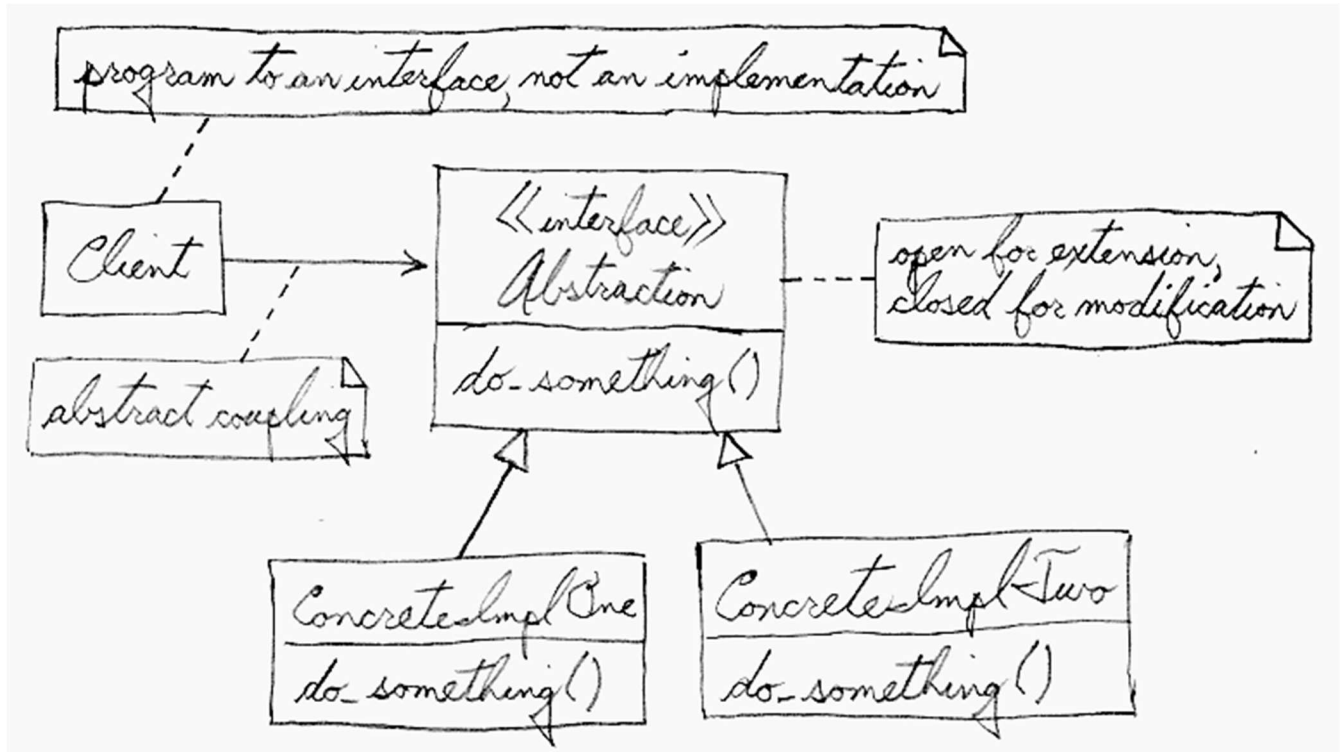 program to an interface, not an implementation
Client
<<interface>>
Abstraction
do_something()
open for extension,
closed for modification
abstract coupling
ConcreteImplOne
do_something()
ConcreteImplTwo
do_something()